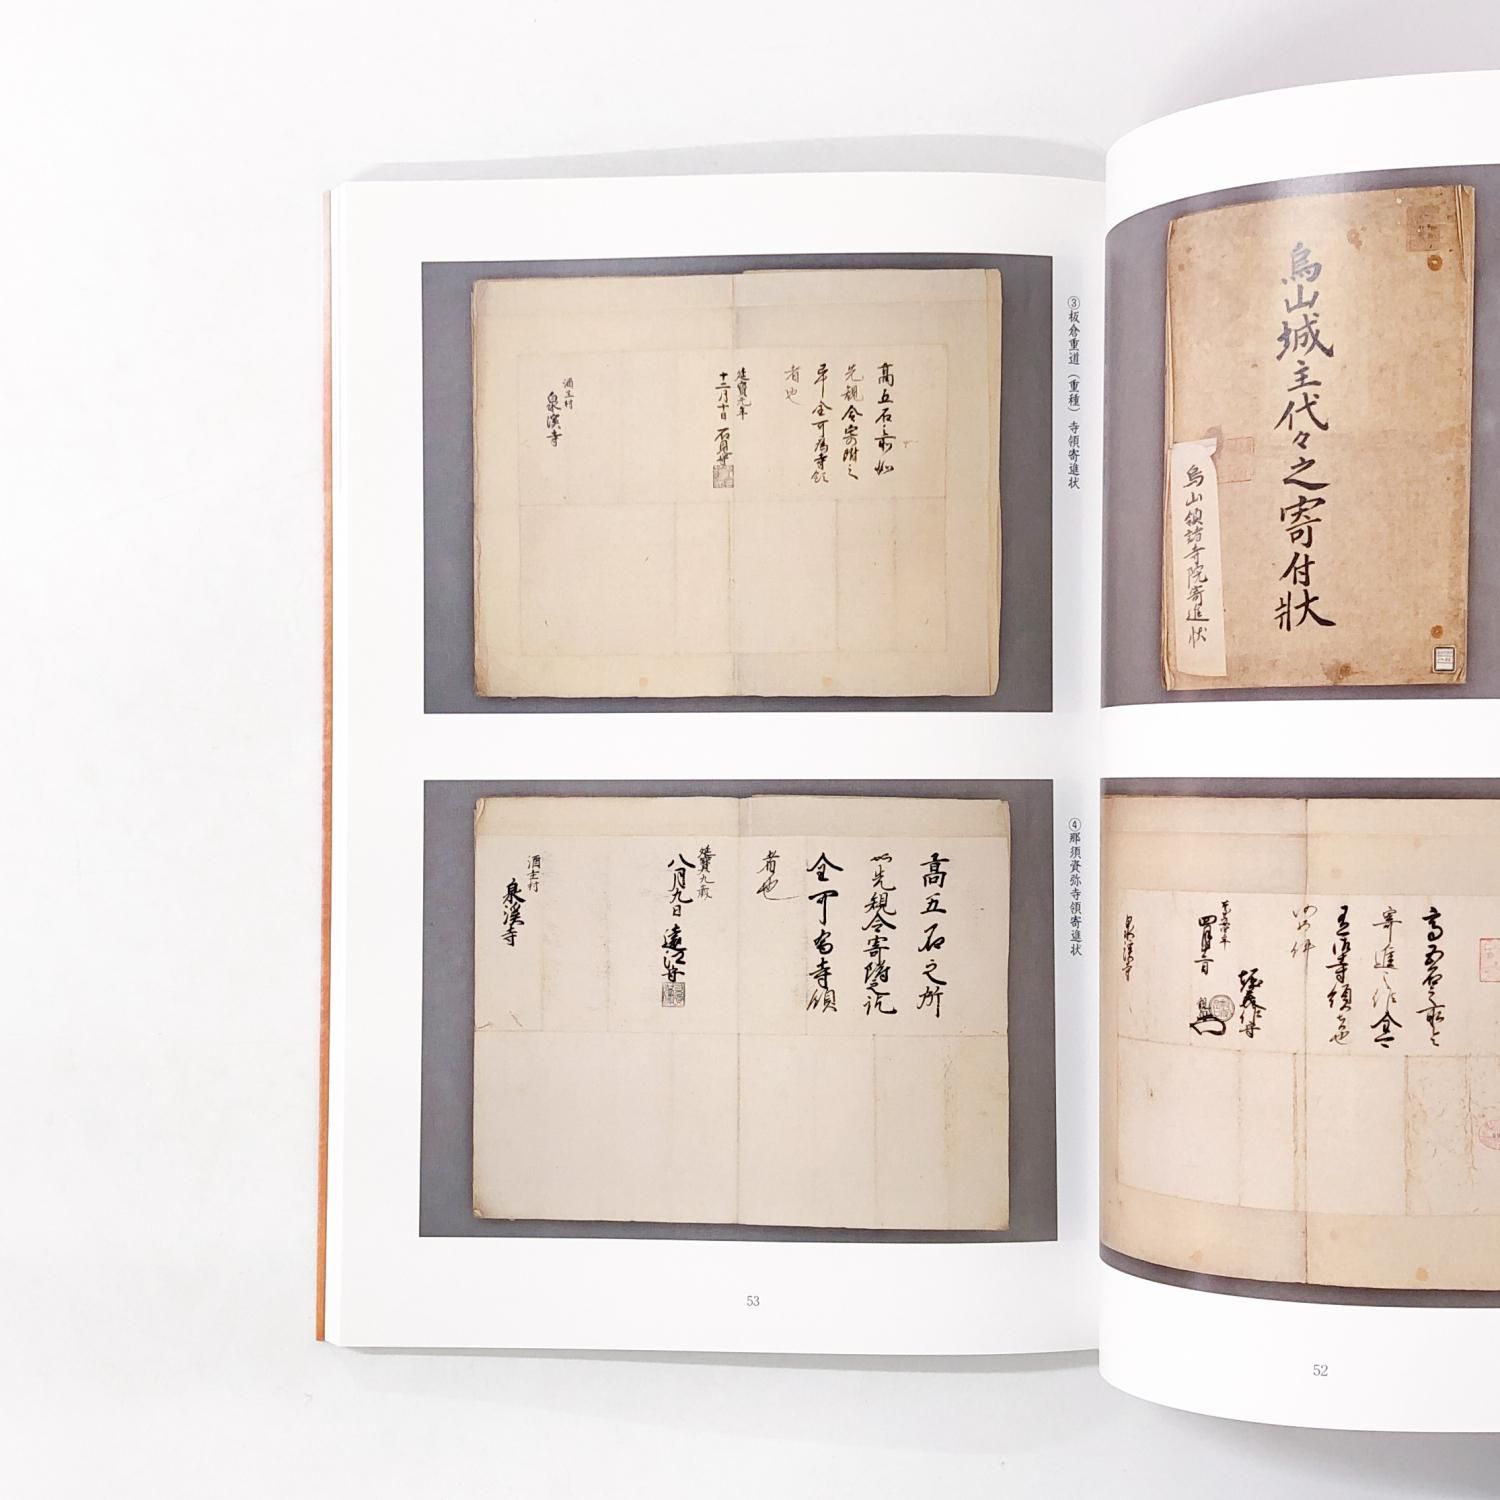 烏山城主代々之寄付狀
烏山領諸寺院寄進狀
寄進之
泉溪寺
52
③板倉重道（重種）寺領寄進状
高五石之所如
先規令寄附之
畢全可為寺領
者也
延寶元年
十二月十日 石見守
酒主村
泉溪寺
④那須資弥寺領寄進状
高五石之所
如先規令寄附之訖
全可為寺領
者也
延寶九年
八月九日 遠江守
酒主村
泉溪寺
53